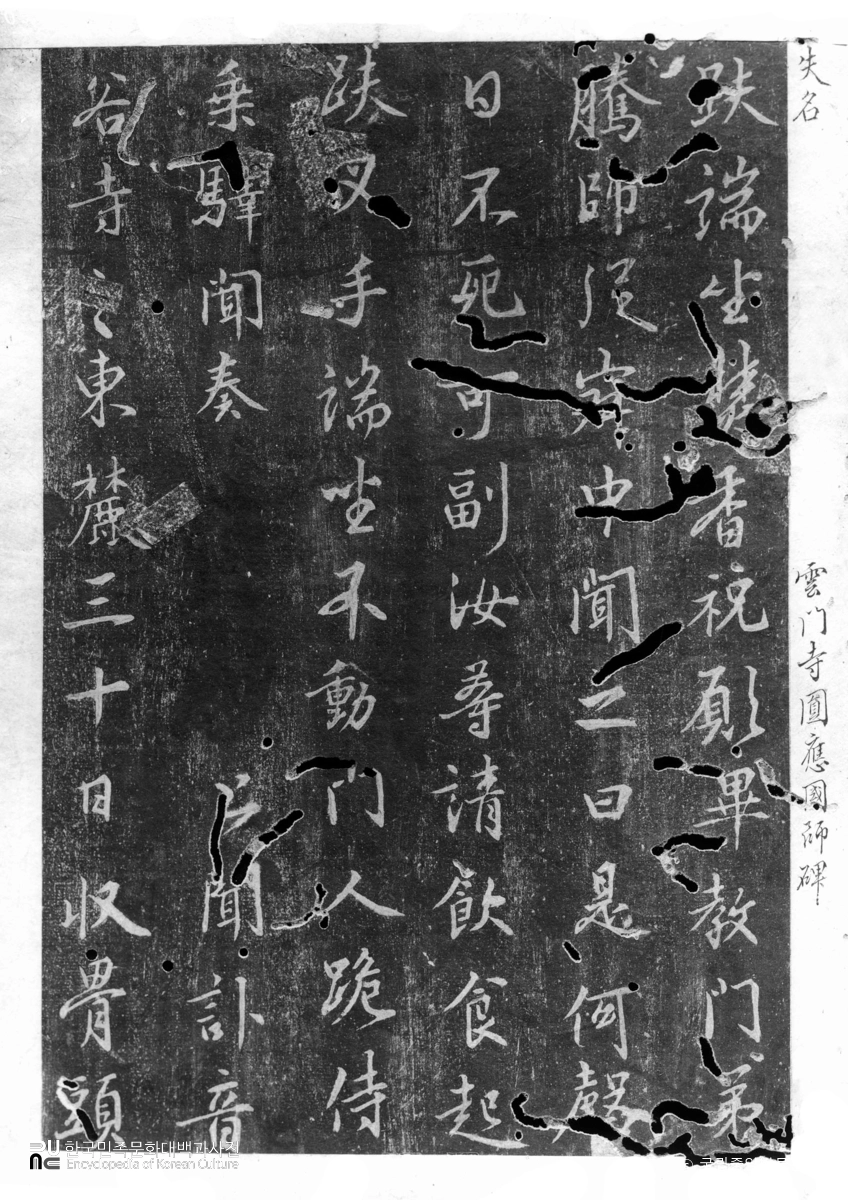 失名 雲門寺圓應國師碑
趺端坐焚香祝願畢教門弟
騰師從中聞之曰是何聲
日不死可副汝等請飮食起
趺叉手端坐不動門人跪侍
乗驛聞奏 聞訃音
谷寺之東麓三十日收骨頭
한국민족문화대백과사전
Encyclopedia of Korean Culture